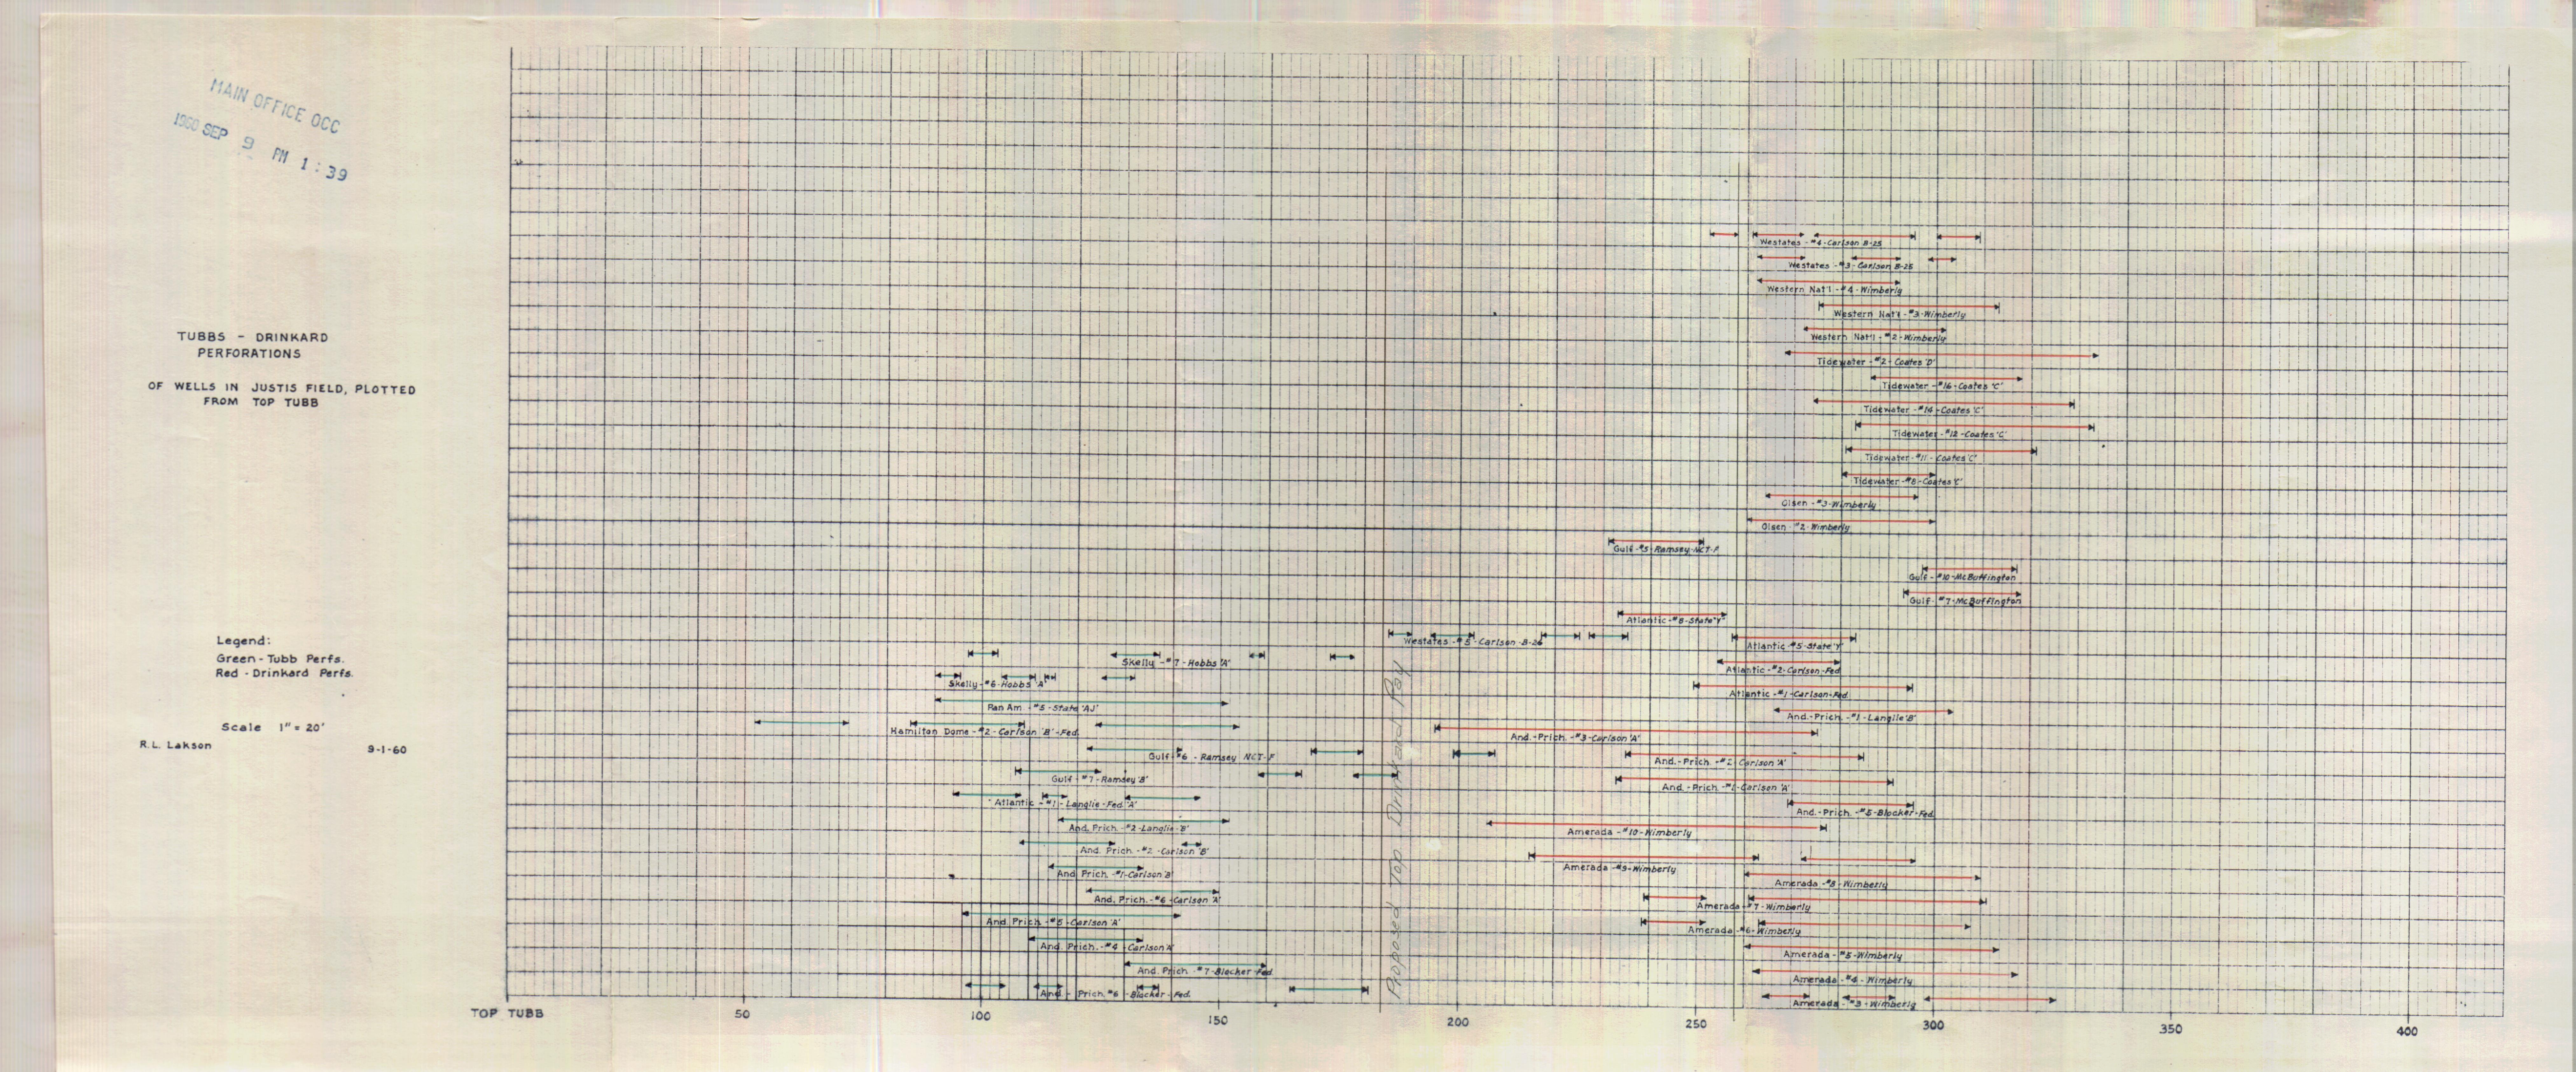 MAIN OFFICE OCC
1960 SEP 9 PM 1:39
TUBBS - DRINKARD
PERFORATIONS
OF WELLS IN JUSTIS FIELD, PLOTTED
FROM TOP TUBB
Legend:
Green - Tubb Perfs.
Red - Drinkard Perfs.
Scale 1" = 20'
R.L. Lakson 9-1-60
Westates - #4 - Carlson B-25
Westates - #3 - Carlson B-25
Western Nat'l - #4 - Wimberly
Western Nat'l - #3 - Wimberly
Western Nat'l - #2 - Wimberly
Tidewater - #2 - Coates 'D'
Tidewater - #16 - Coates 'C'
Tidewater - #14 - Coates 'C'
Tidewater - #12 - Coates 'C'
Tidewater - #11 - Coates 'C'
Tidewater - #8 - Coates 'C'
Olsen - #3 - Wimberly
Olsen - #2 - Wimberly
Gulf - #5 - Ramsey NCT-F
Gulf - #10 - McBuffington
Gulf - #7 - McBuffington
Atlantic - #8 - State 'Y'
Westates - #5 - Carlson B-26
Atlantic #5 - State 'Y'
Skelly - #7 - Hobbs 'A'
Atlantic - #2 - Carlson-Fed
Skelly - #6 - Hobbs 'A'
Atlantic - #1 - Carlson-Fed
Pan Am - #5 - State 'AJ'
And.-Prich. - #1 - Langlie 'B'
Hamilton Dome - #2 - Carlson 'B' - Fed.
And.-Prich. - #3 - Carlson 'A'
Gulf - #6 - Ramsey NCT-F
And.-Prich. - #2 - Carlson 'A'
Gulf - #7 - Ramsey 'B'
And.-Prich. - #1 - Carlson 'A'
Atlantic - #1 - Langlie-Fed 'A'
And.-Prich. - #5 - Blocker-Fed.
And. Prich. - #2 - Langlie - 'B'
Amerada - #10 - Wimberly
And. Prich. - #2 - Carlson 'B'
Amerada - #9 - Wimberly
And. Prich. - #1 - Carlson 'B'
Amerada - #8 - Wimberly
And. Prich. - #6 - Carlson 'A'
Amerada - #7 - Wimberly
And. Prich. - #5 - Carlson 'A'
Amerada - #6 - Wimberly
And. Prich. - #4 - Carlson 'A'
Amerada - #5 - Wimberly
And. Prich. - #7 - Blocker - Fed
Amerada - #4 - Wimberly
And. - Prich. #6 - Blocker - Fed.
Amerada - #3 - Wimberly
Proposed Top Drinkard Pay
TOP TUBB 50 100 150 200 250 300 350 400